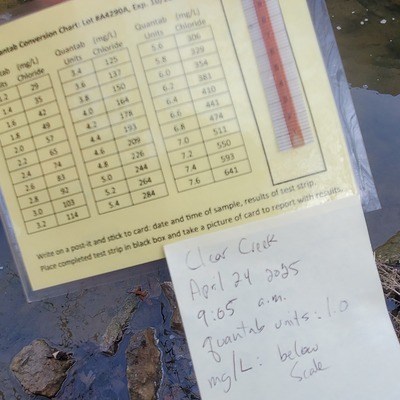 antab Conversion Chart: Lot #A4290A, Exp. 10/
Quantab Units (mg/L) Chloride
1.2 29
1.4 35
1.6 42
1.8 49
2.0 57
2.2 65
2.4 74
2.6 83
2.8 92
3.0 103
3.2 114
Quantab Units (mg/L) Chloride
3.4 125
3.6 137
3.8 150
4.0 164
4.2 178
4.4 193
4.6 209
4.8 226
5.0 244
5.2 264
5.4 284
Quantab Units (mg/L) Chloride
5.6 306
5.8 329
6.0 354
6.2 381
6.4 410
6.6 441
6.8 474
7.0 511
7.2 550
7.4 593
7.6 641
Write on a post-it and stick to card: date and time of sample, results of test strip.
Place completed test strip in black box and take a picture of card to report with results.
Clear Creek
April 24 2025
9:05 a.m.
quantab units: 1.0
mg/L: below
Scale